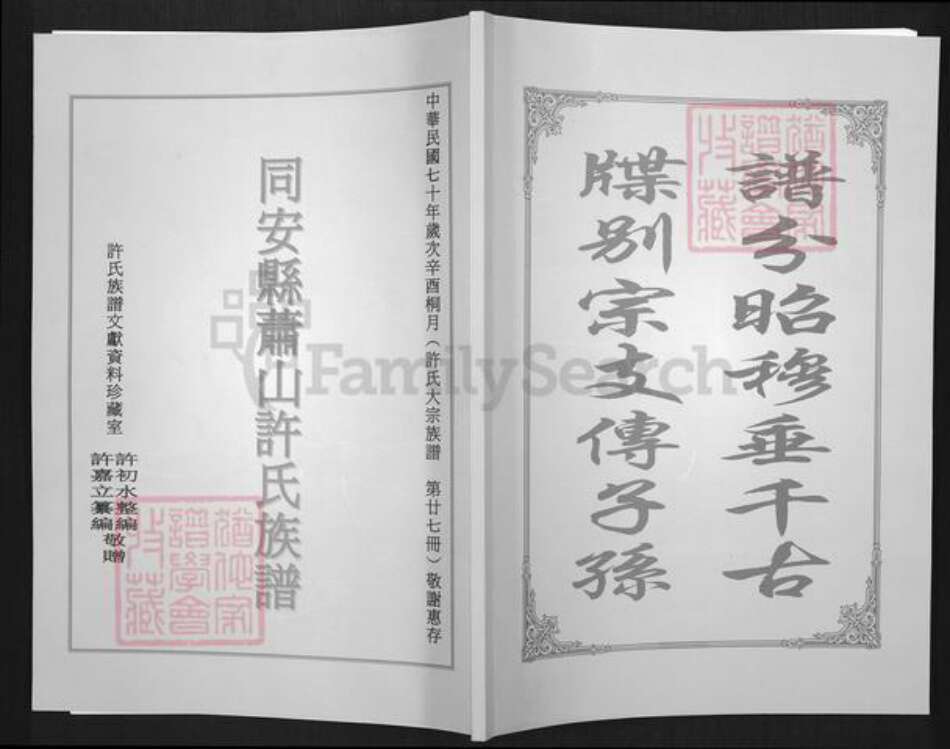 譜分昭穆垂千古
牒別宗支傳子孫
中華民國七十年歲次辛酉桐月（許氏大宗族譜 第廿七冊）敬謝惠存
同安縣蕭山許氏族譜
許氏族譜文獻資料珍藏室
許初水整編
許嘉立纂編
敬贈
譜學會
收藏
FamilySearch